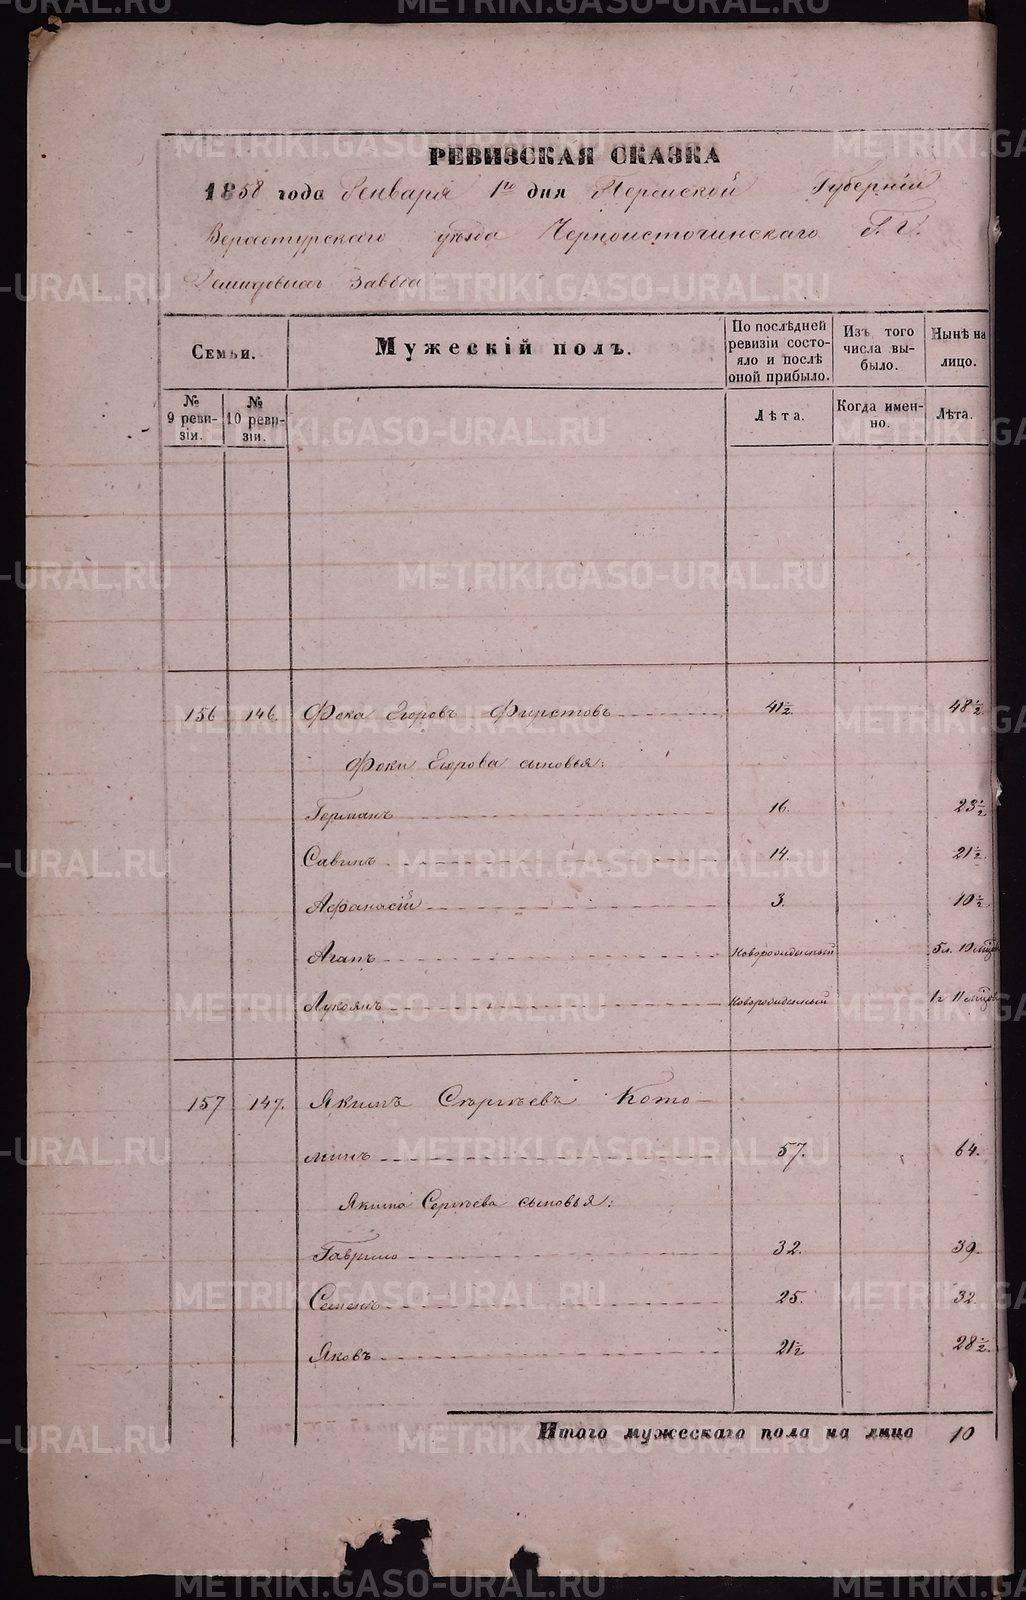 РЕВИЗСКАЯ СКАЗКА
1858 года Генваря 1го дня Пермской Губерніи
Верхотурскаго уѣзда Черноисточинскаго Г.Г.
Демидовыхъ Завода
Семьи. Мужескій полъ. По послѣдней ревизіи состояло и послѣ оной прибыло. Изъ того числа выбыло. Нынѣ на лицо.
№ 9 ревизіи. № 10 ревизіи. Лѣта. Когда именно. Лѣта.
156 146. Фока Егоровъ Фирстовъ 41½. 48½
Фоки Егорова сыновья:
Германъ 16. 23½
Савинъ 14. 21½.
Афанасій 3. 10½.
Агапъ Новорожденный 5л. 10 мѣцов
Лукоянъ Новорожденный 1г 11 мѣцов
157 147. Якимъ Сергѣевъ Кото-
минъ 57. 64.
Якима Сергѣева сыновья:
Гаврило 32. 39.
Семенъ 25. 32.
Яковъ 21½ 28½.
Итого мужескаго пола на лицо 10
METRIKI.GASO-URAL.RU